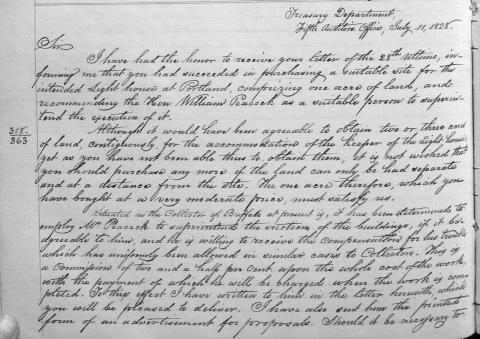 Treasury Department,
Fifth Auditor's Office, July 11, 1828.
Sir
I have had the honor to receive your letter of the 28th Ultimo, in-
forming me that you had succeeded in purchasing a suitable site for the
intended Light house at Portland, comprizing one acre of land, and
recommending the Hon William Peacock as a suitable person to superin-
tend the execution of it.
318.
363
Although it would have been agreeable to obtain two or three acres
of land, contiguously, for the accommodation of the Keeper of the Light House,
yet as you have not been able thus to obtain them, it is not wished that
you should purchase any more if the land can only be had separate
and at a distance from the site. The one acre therefore, which you
have bought at a very moderate price, must satisfy us.
Situated as the Collector of Buffalo at present is, it has been determined to
employ Mr Peacock to superintend the erection of the buildings, if it be
agreeable to him, and he is willing to receive the compensation for his trouble
which has uniformly been allowed in similar cases to Collectors. This is
a Commission of two and a half per cent upon the whole cost of the work,
with the payment of which he will be charged when the work is com-
pleted. To this effect I have written to him in the letter herewith, which
you will be pleased to deliver. I have also sent him the printed
form of an advertisement for proposals. Should it be necessary to